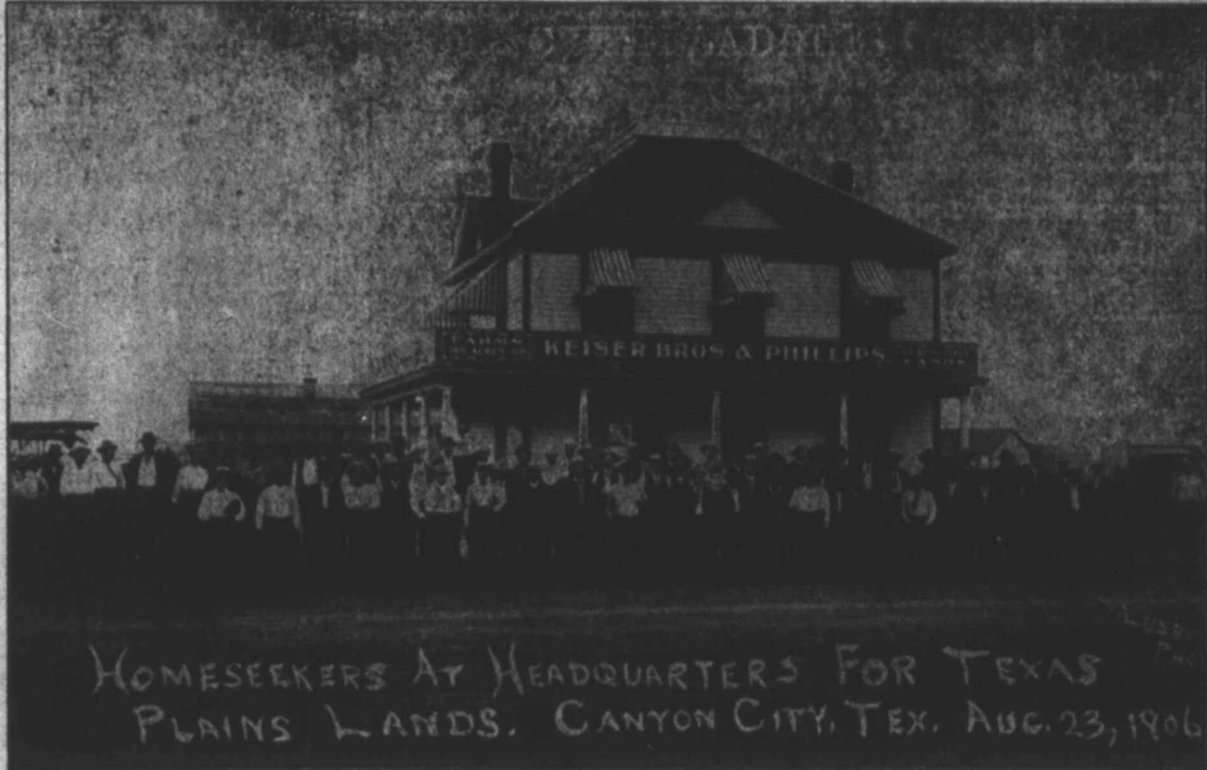 KEISER BROS & PHILLIPS
HOMESEEKERS AT HEADQUARTERS FOR TEXAS
PLAINS LANDS. CANYON CITY, TEX. AUG. 23, 1906